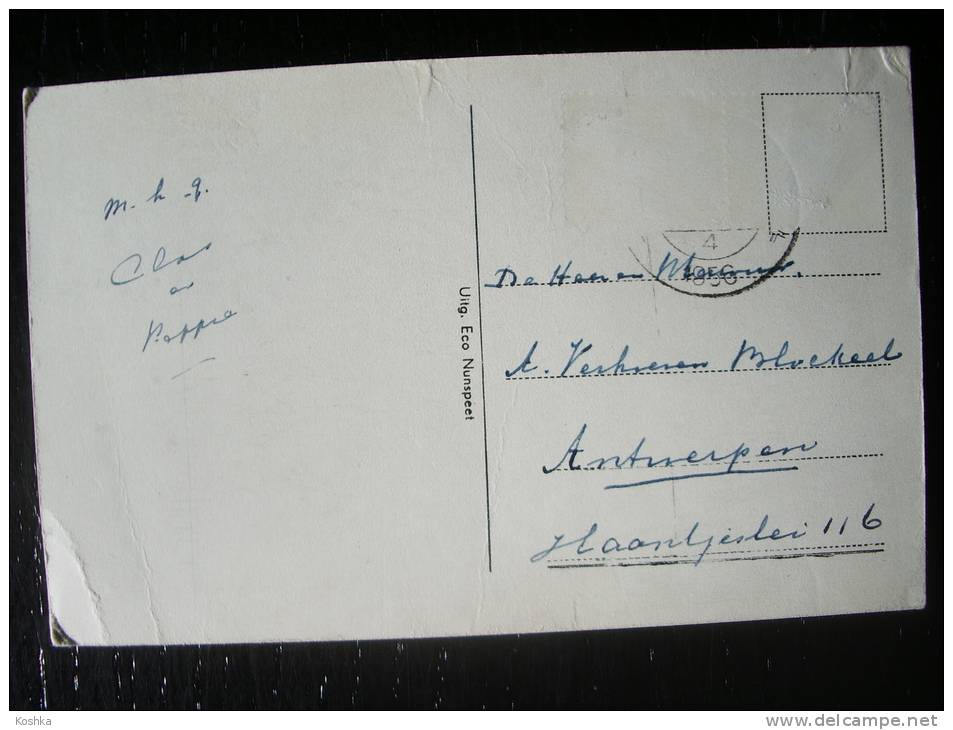 m. h. g.
Clos
en
Poppie
Uitg. Eco Nunspeet
4
1956
De Heer en Mevrouw.
A. Verhoeven Blockeel
Antwerpen
Haantjeslei 116
Koshka
www.delcampe.net